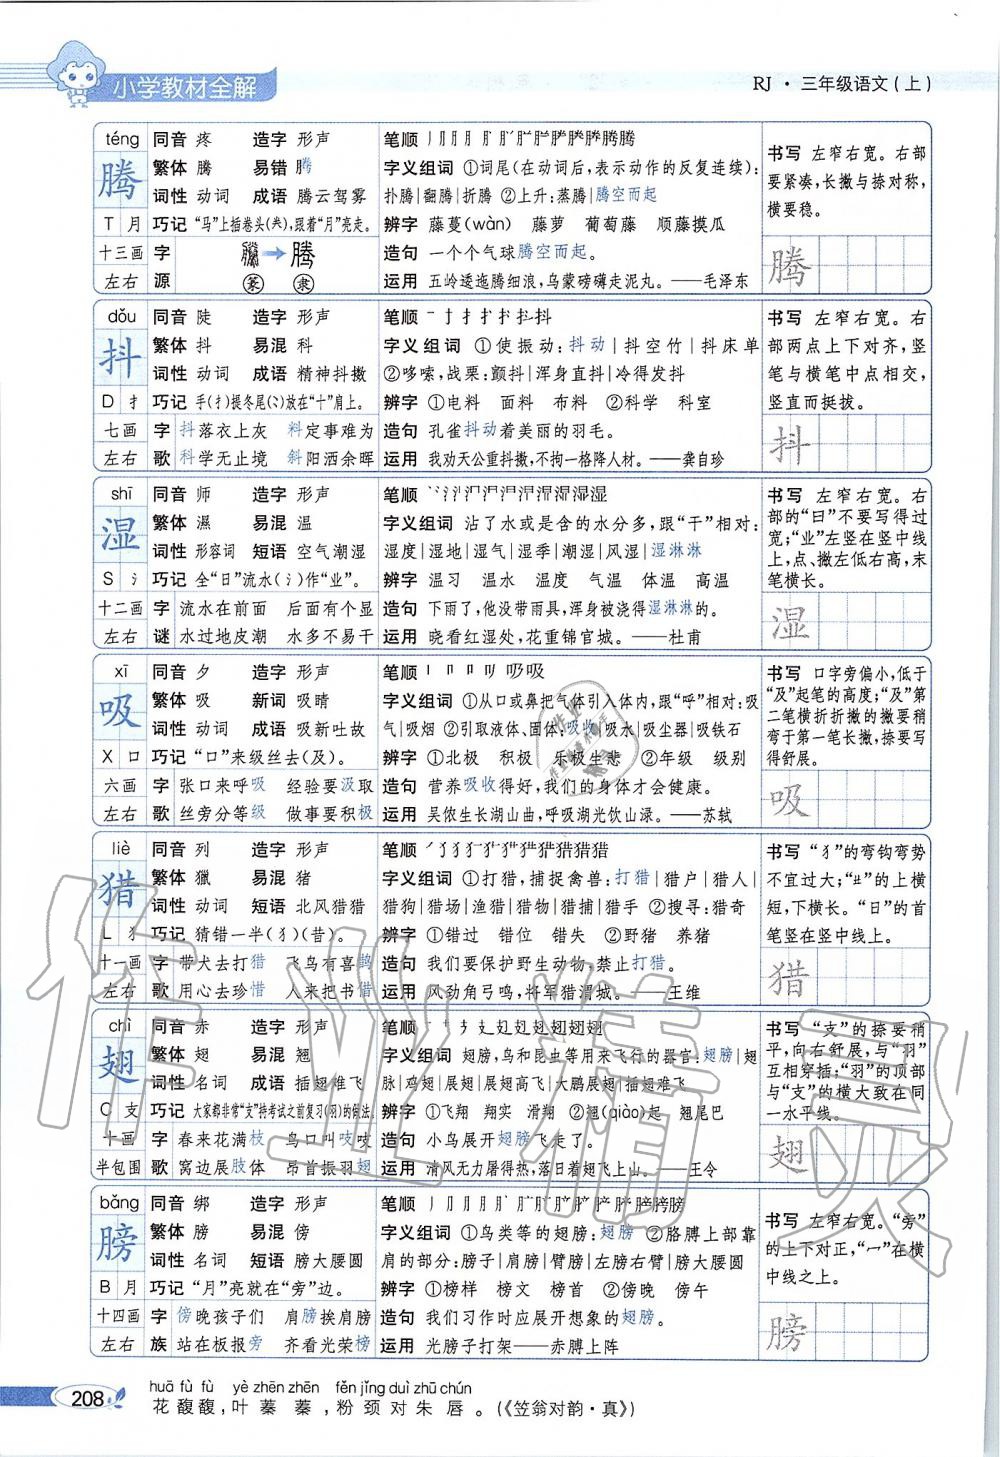 小学教材全解
RJ·三年级语文(上)
téng
腾
T 月
十三画
左右
同音 疼 造字 形声
繁体 騰 易错 腾
词性 动词 成语 腾云驾雾
巧记 “马”上插卷头(龹),跟着“月”亮走。
字源
腾
篆 隶
笔顺
字义组词 ①词尾(在动词后,表示动作的反复连续):
扑腾|翻腾|折腾 ②上升:蒸腾|腾空而起
辨字 藤蔓(wàn) 藤萝 葡萄藤 顺藤摸瓜
造句 一个个气球腾空而起。
运用 五岭逶迤腾细浪,乌蒙磅礴走泥丸。——毛泽东
书写 左窄右宽。右部
要紧凑,长撇与捺对称,
横要稳。
腾
dǒu
抖
D 扌
七画
左右
同音 陡 造字 形声
繁体 抖 易混 科
词性 动词 成语 精神抖擞
巧记 手(扌)提冬尾(⺀)放在“十”肩上。
字 抖落衣上灰 料定事难为
歌 科学无止境 斜阳洒余晖
笔顺
字义组词 ①使振动:抖动|抖空竹|抖床单
②哆嗦,战栗:颤抖|浑身直抖|冷得发抖
辨字 ①电料 面料 布料 ②科学 科室
造句 孔雀抖动着美丽的羽毛。
运用 我劝天公重抖擞,不拘一格降人材。——龚自珍
书写 左窄右宽。右
部两点上下对齐,竖
笔与横笔中点相交,
竖直而挺拔。
抖
shī
湿
S 氵
十二画
左右
同音 师 造字 形声
繁体 濕 易混 温
词性 形容词 短语 空气潮湿
巧记 全“日”流水(氵)作“业”。
字 流水在前面 后面有个显
谜 水过地皮潮 水多不易干
笔顺
字义组词 沾了水或是含的水分多,跟“干”相对:
湿度|湿地|湿气|湿季|潮湿|风湿|湿淋淋
辨字 温习 温水 温度 气温 体温 高温
造句 下雨了,他没带雨具,浑身被浇得湿淋淋的。
运用 晓看红湿处,花重锦官城。——杜甫
书写 左窄右宽。右
部的“日”不要写得过
宽;“业”左竖在竖中线
上,点、撇左低右高,末
笔横长。
湿
xī
吸
X 口
六画
左右
同音 夕 造字 形声
繁体 吸 新词 吸晴
词性 动词 成语 吸新吐故
巧记 “口”来级丝去(及)。
字 张口来呼吸 经验要汲取
歌 丝旁分等级 做事要积极
笔顺
字义组词 ①从口或鼻把气体引入体内,跟“呼”相对:吸
气|吸烟 ②引取液体、固体:吸收|吸水|吸尘器|吸铁石
辨字 ①北极 积极 乐极生悲 ②年级 级别
造句 营养吸收得好,我们的身体才会健康。
运用 吴侬生长湖山曲,呼吸湖光饮山渌。——苏轼
书写 口字旁偏小,低于
“及”起笔的高度;“及”第
二笔横折折撇的撇要稍
弯于第一笔长撇,捺要写
得舒展。
吸
liè
猎
L 犭
十一画
左右
同音 列 造字 形声
繁体 獵 易混 猪
词性 动词 短语 北风猎猎
巧记 猜错一半(犭)(昔)。
字 带犬去打猎 飞鸟有喜鹊
歌 用心去珍惜 人来把书借
笔顺
字义组词 ①打猎,捕捉禽兽:打猎|猎户|猎人|
猎狗|猎场|渔猎|猎物|猎捕|猎手 ②搜寻:猎奇
辨字 ①错过 错位 错失 ②野猪 养猪
造句 我们要保护野生动物,禁止打猎。
运用 风劲角弓鸣,将军猎渭城。——王维
书写 “犭”的弯钩弯势
不宜过大;“龷”的上横
短,下横长。“日”的首
笔竖在竖中线上。
猎
chì
翅
C 支
十画
半包围
同音 赤 造字 形声
繁体 翅 易混 翘
词性 名词 成语 插翅难飞
巧记 大家都非常“支”持考试之前复习(羽)的做法。
字 春来花满枝 鸟口叫吱吱
歌 窝边展肢体 昂首振羽翅
笔顺
字义组词 翅膀,鸟和昆虫等用来飞行的器官:翅膀|翅
脉|鸡翅|展翅|展翅高飞|大鹏展翅|插翅难飞
辨字 ①飞翔 翔实 滑翔 ②翘(qiào)起 翘尾巴
造句 小鸟展开翅膀飞走了。
运用 清风无力屠得热,落日着翅飞上山。——王令
书写 “支”的捺要稍
平,向右舒展,与“羽”
互相穿插;“羽”的顶部
与“支”的横大致在同
一水平线。
翅
bǎng
膀
B 月
十四画
左右
同音 绑 造字 形声
繁体 膀 易混 傍
词性 名词 短语 膀大腰圆
巧记 “月”亮就在“旁”边。
字 傍晚孩子们 肩膀挨肩膀
族 站在板报旁 齐看光荣榜
笔顺
字义组词 ①鸟类等的翅膀:翅膀 ②胳膊上部靠
肩的部分:膀子|肩膀|臂膀|左膀右臂|膀大腰圆
辨字 ①榜样 榜文 榜首 ②傍晚 傍午
造句 我们习作时应展开想象的翅膀。
运用 光膀子打架——赤膊上阵
书写 左窄右宽。“旁”
的上下对正,“冖”在横
中线之上。
膀
208
huā fù fù yè zhēn zhēn fěn jǐng duì zhū chún
花馥馥,叶蓁蓁,粉颈对朱唇。(《笠翁对韵·真》)
作业精灵